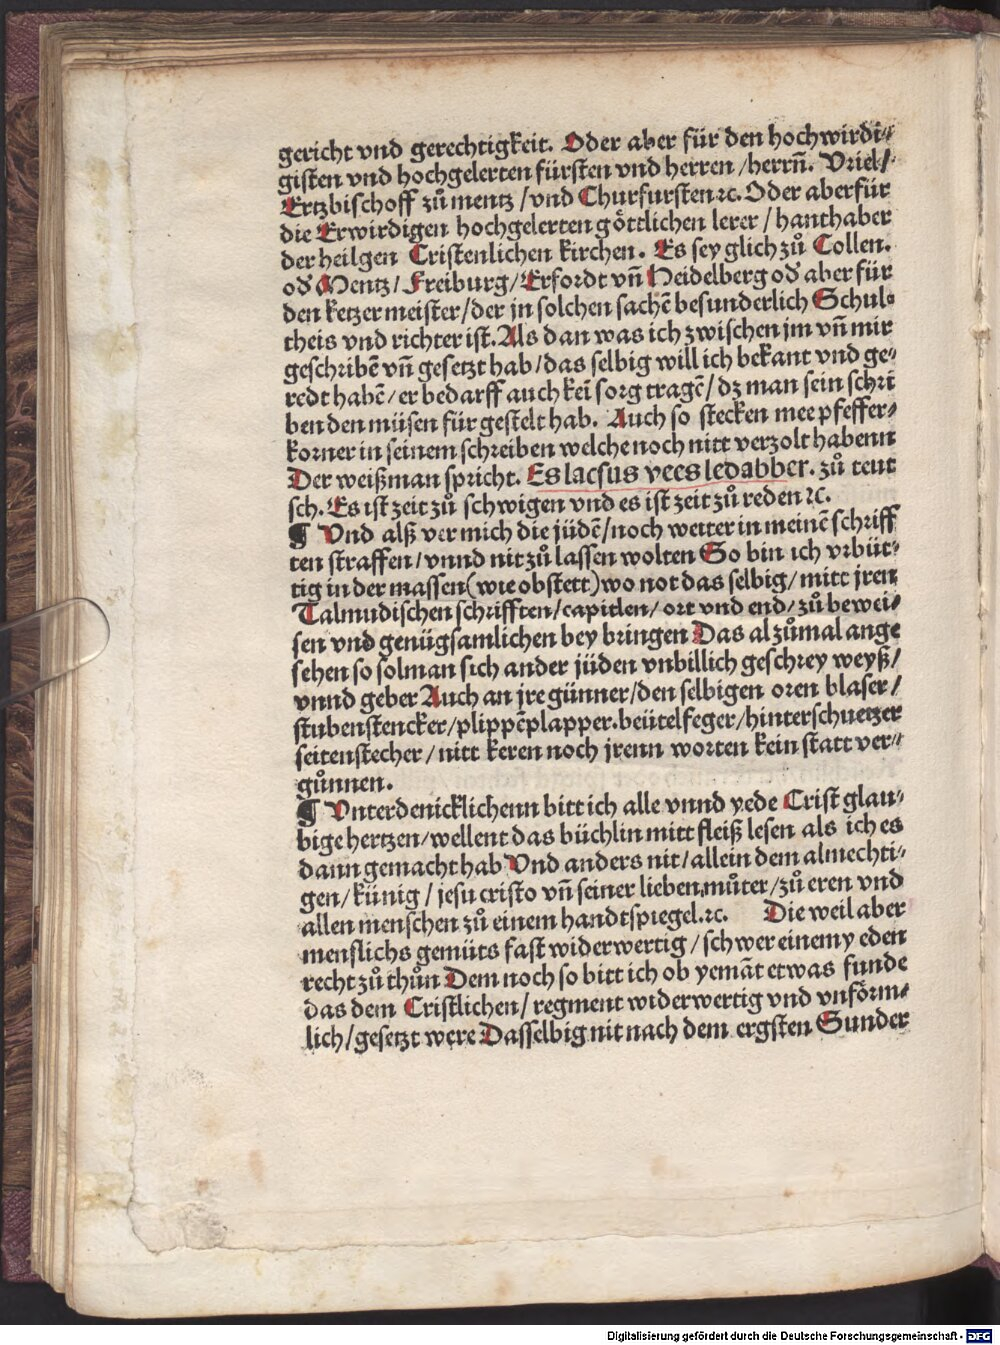 gericht vnd gerechtigkeit. Oder aber für den hochwirdi⸗
gisten vnd hochgelerten fürsten vnd herren /herrñ. Vriel/
Ertzbischoff zů mentz /vnd Churfursten ꝛc. Oder aberfür
die Erwirdigen hochgelerten göttlichen lerer / hanthaber
der heilgen Cristenlichen kirchen. Es sey glich zů Collen.
od̕ Mentz/ Freiburg/ Erfordt vñ Heidelberg od̕ aber für
den ketzermeister/der jn solchen sachē besunderlich Schul⸗
theis vnd richter ist. Als dan was ich zwischen jm vñ mir
geschribē vñ gesetzt hab/das selbig will ich bekant vnd ge⸗
redt habē/er bedarff auch keī sorg tragē/ dz man sein schrī
ben den müsen für gestelt hab. Auch so stecken mee pfeffer⸗
korner in seinem schreiben welche noch nitt verzolt habenn
Der weißman spricht. Es lacsus vees ledabber. zů teut
sch. Es ist zeit zů schwigen vnd es ist zeit zů reden ꝛc.
¶ Vnd alß ver mich die jüdē/noch weiter in meinē schriff
ten straffen/vnnd nit zů lassen wolten So bin ich vrbüt⸗
tig in der massen(wie obstett)wo not das selbig/ mitt jren
Talmudischen schrifften/capitlen/ ort vnd end/ zů bewei⸗
sen vnd genügsamlichen bey bringen Das alzůmal ange
sehen so solman sich ander jüden vnbillich geschrey weyß/
vnnd geber Auch an jre günner/den selbigen oren blaser/
stubenstencker/plippēplapper.beütelfeger/hinterschwetzer
seitenstecher/nitt keren noch jrenn worten kein statt ver⸗
gůnnen.
¶ Vnterdenicklichenn bitt ich alle vnnd yede Crist glau⸗
bige hertzen/wellent das büchlin mitt fleiß lesen als ich es
dann gemacht hab Vnd anders nit/allein dem almechti⸗
gen/künig/ jesu cristo vñ seiner lieben můter/zů eren vnd
allen menschen zů einem handtspiegel.ꝛc. Die weil aber
menslichs gemüts fast widerwertig/schwer einem y eden
recht zů thůn Dem noch so bitt ich ob yemāt etwas funde
das dem Cristlichen/ regment widerwertig vnd vnförm⸗
lich/gesetzt were Dasselbig nit nach dem ergsten Sunder
Digitalisierung gefördert durch die Deutsche Forschungsgemeinschaft - DFG